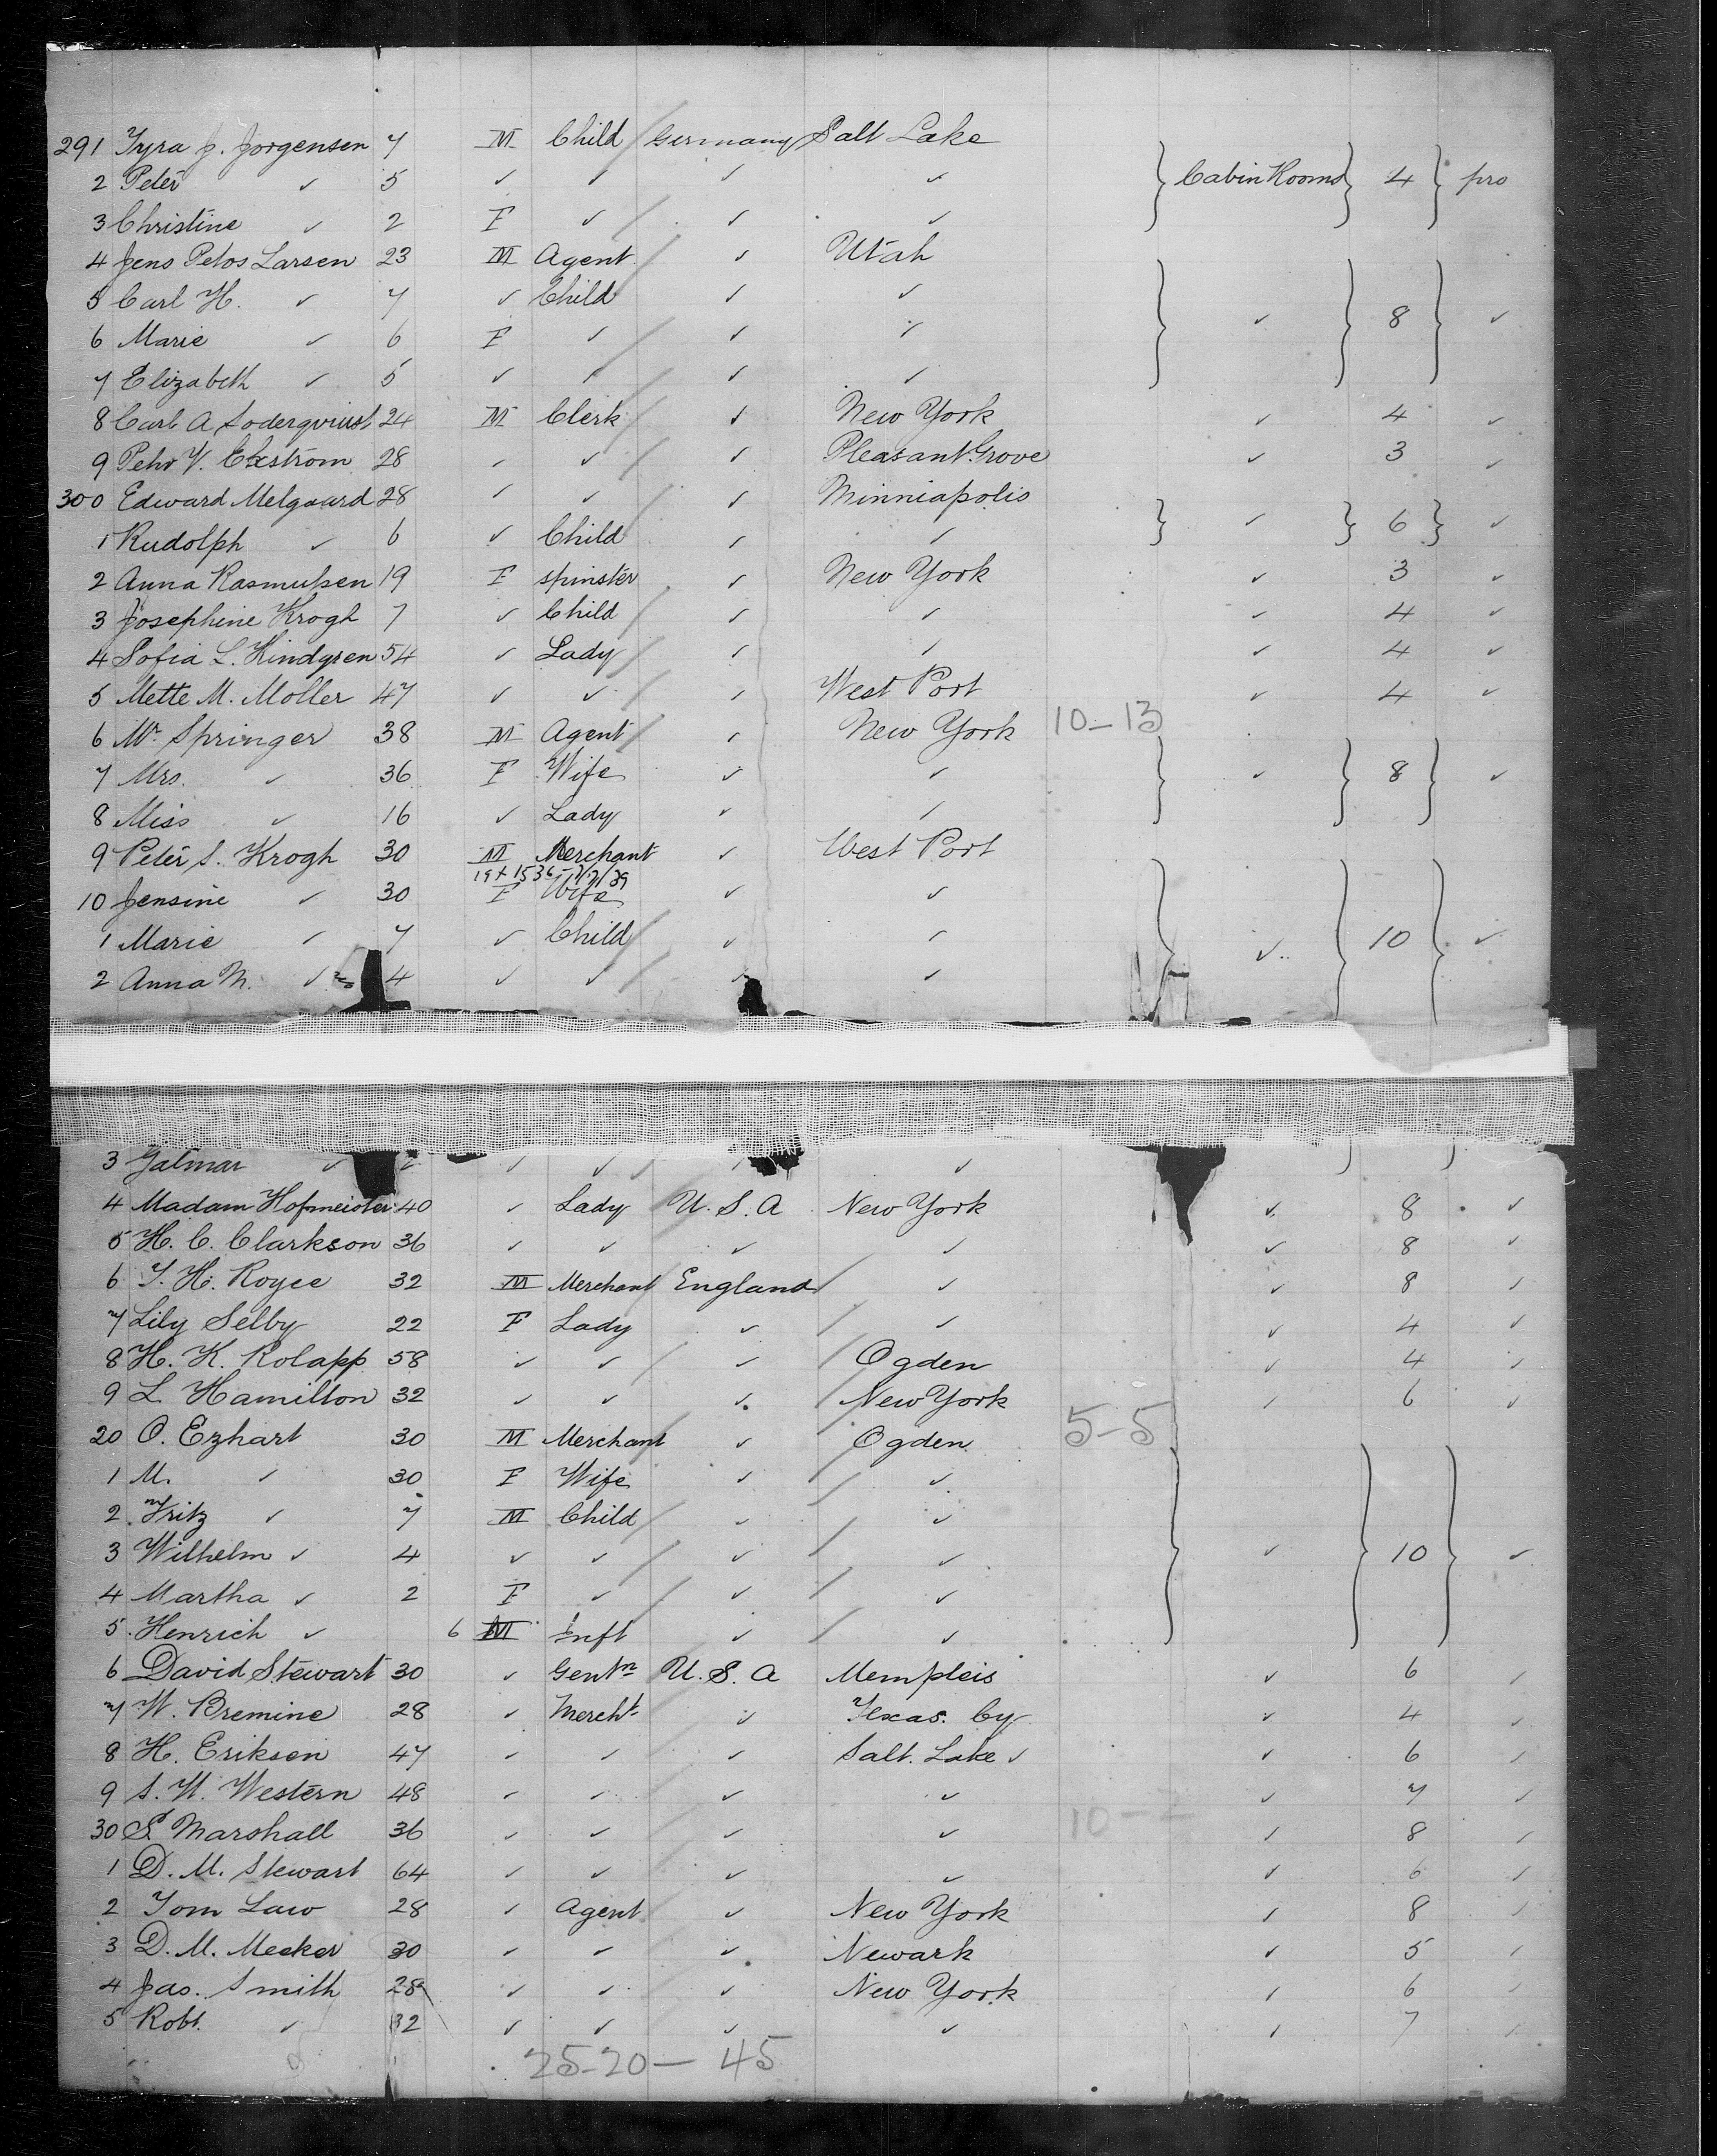 291 Tyra J. Jorgensen 7 M Child Germany Salt Lake
2 Peter ✓ 5 ✓ ✓ ✓ ✓ } Cabin Rooms } 4 } pro
3 Christine ✓ 2 F ✓ ✓ ✓
4 Jens Petos Larsen 23 M Agent ✓ Utah
5 Carl H. ✓ 7 ✓ Child ✓ ✓
6 Marie ✓ 6 F ✓ ✓ ✓ } ✓ } 8 } ✓
7 Elizabeth ✓ 5 ✓ ✓ ✓ ✓
8 Carl A Soderqviust 24 M Clerk ✓ New York ✓ 4 ✓
9 Pehr V. 28 ✓ ✓ ✓ Pleasant Grove ✓ 3 ✓
300 Edward Melgaard 28 ✓ ✓ ✓ Minniapolis
1 Rudolph ✓ 6 ✓ Child ✓ ✓ } ✓ } 6 } ✓
2 Anna Rasmussen 19 F spinster ✓ New York ✓ 3 ✓
3 Josephine Krogh 7 ✓ Child ✓ ✓ ✓ 4 ✓
4 Sofia L. Hindgren 54 ✓ Lady ✓ ✓ ✓ 4 ✓
5 Mette M. Moller 47 ✓ ✓ ✓ West Port ✓ 4 ✓
6 Mr. Springer 38 M Agent ✓ New York 10-13
7 Mrs. ✓ 36 F Wife ✓ ✓ } ✓ } 8 } ✓
8 Miss ✓ 16 ✓ Lady ✓ ✓
9 Peter S. Krogh 30 M Merchant ✓ West Port
10 Jensine ✓ 30 F Wife ✓ ✓
1 Marie ✓ 7 ✓ Child ✓ ✓ } ✓ } 10 } ✓
2 Anna M. ✓ 4 ✓ ✓ ✓ ✓
3 Galmar ✓ ✓ ✓ ✓ ✓
4 Madam Hofmeister 40 ✓ Lady U.S.A New York ✓ 8 ✓
5 H. C. Clarkson 36 ✓ ✓ ✓ ✓ ✓ 8 ✓
6 T. H. Royce 32 M Merchant England ✓ ✓ 8 ✓
7 Lily Selby 22 F Lady ✓ ✓ ✓ 4 ✓
8 H. K. Rolapp 58 ✓ ✓ ✓ Ogden ✓ 4 ✓
9 L. Hamilton 32 ✓ ✓ ✓ New York ✓ 6 ✓
20 O. Ezhart 30 M Merchant ✓ Ogden 5-5
1 M. ✓ 30 F Wife ✓ ✓
2 Fritz ✓ 7 M Child ✓ ✓
3 Wilhelm ✓ 4 ✓ ✓ ✓ ✓ } ✓ } 10 } ✓
4 Martha ✓ 2 F ✓ ✓ ✓
5 Henrich ✓ 6 M Inft ✓ ✓
6 David Stewart 30 ✓ Gentn U.S.A Mempleis ✓ 6 ✓
7 W. Bremine 28 ✓ Mercht ✓ Texas. Cy ✓ 4 ✓
8 H. Erikson 47 ✓ ✓ ✓ Salt. Lake ✓ ✓ 6 ✓
9 S. W. Western 48 ✓ ✓ ✓ ✓ ✓ 7 ✓
30 S. Marshall 36 ✓ ✓ ✓ ✓ ✓ 8 ✓
1 D. M. Stewart 64 ✓ ✓ ✓ ✓ ✓ 6 ✓
2 Tom Law 28 ✓ Agent ✓ New York ✓ 8 ✓
3 D. M. Meeker 30 ✓ ✓ ✓ Newark ✓ 5 ✓
4 Jas. Smith 28 ✓ ✓ ✓ New York ✓ 6 ✓
5 Robt. ✓ 32 ✓ ✓ ✓ ✓ ✓ 7 ✓
25-20-45